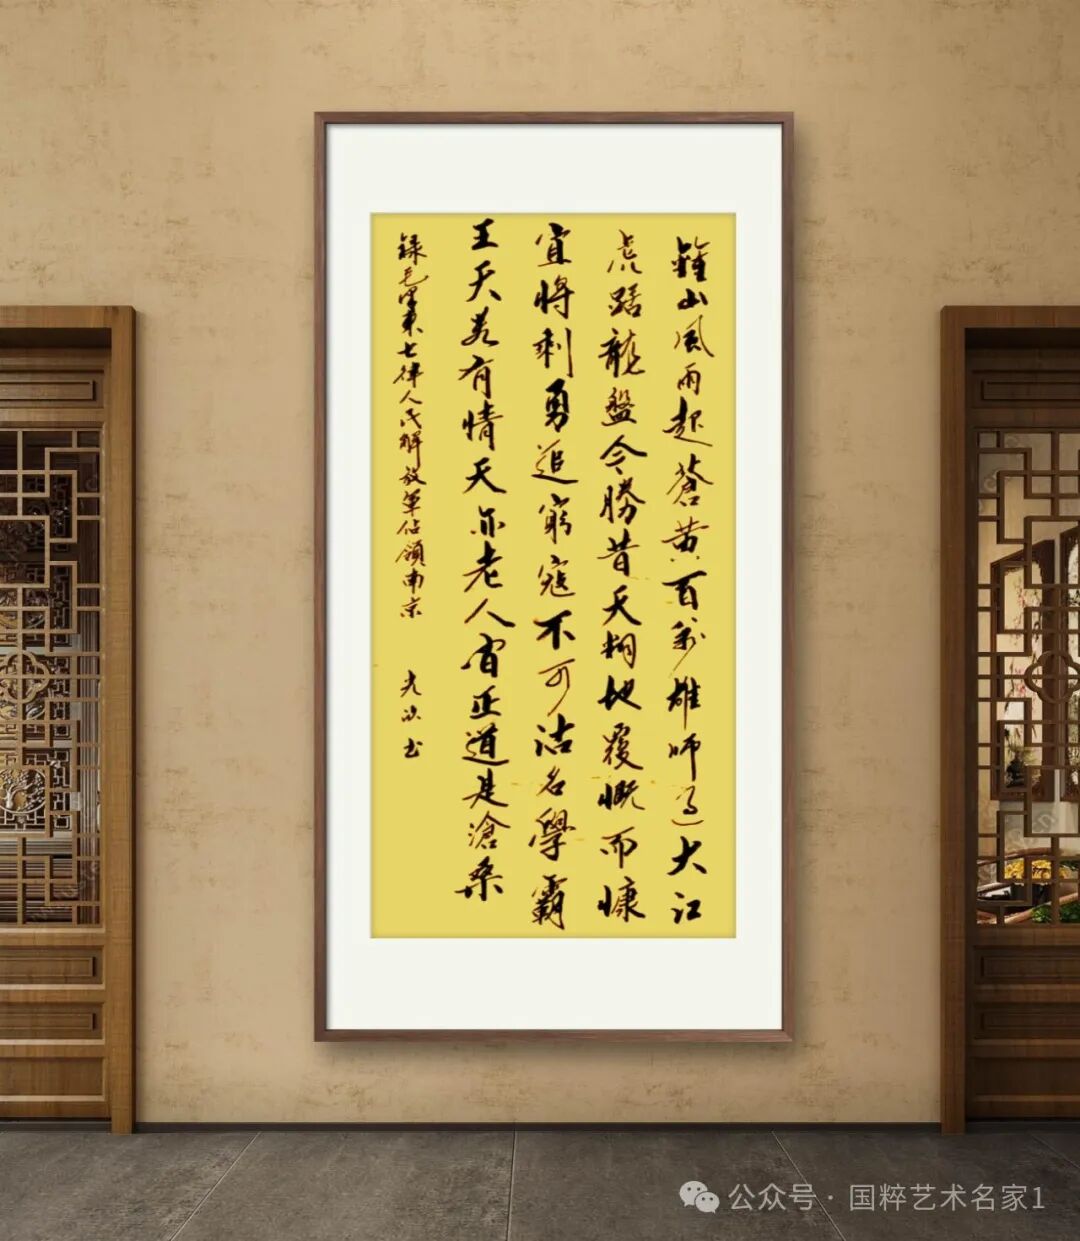 鍾山風雨起蒼黄百萬雄师过大江
虎踞龍盤今勝昔天翻地覆慨而慷
宜将剩勇追窮寇不可沽名學霸
王天若有情天亦老人间正道是滄桑
録毛泽東七律人民解放軍佔領南京
光 书
公众号 · 国粹艺术名家1